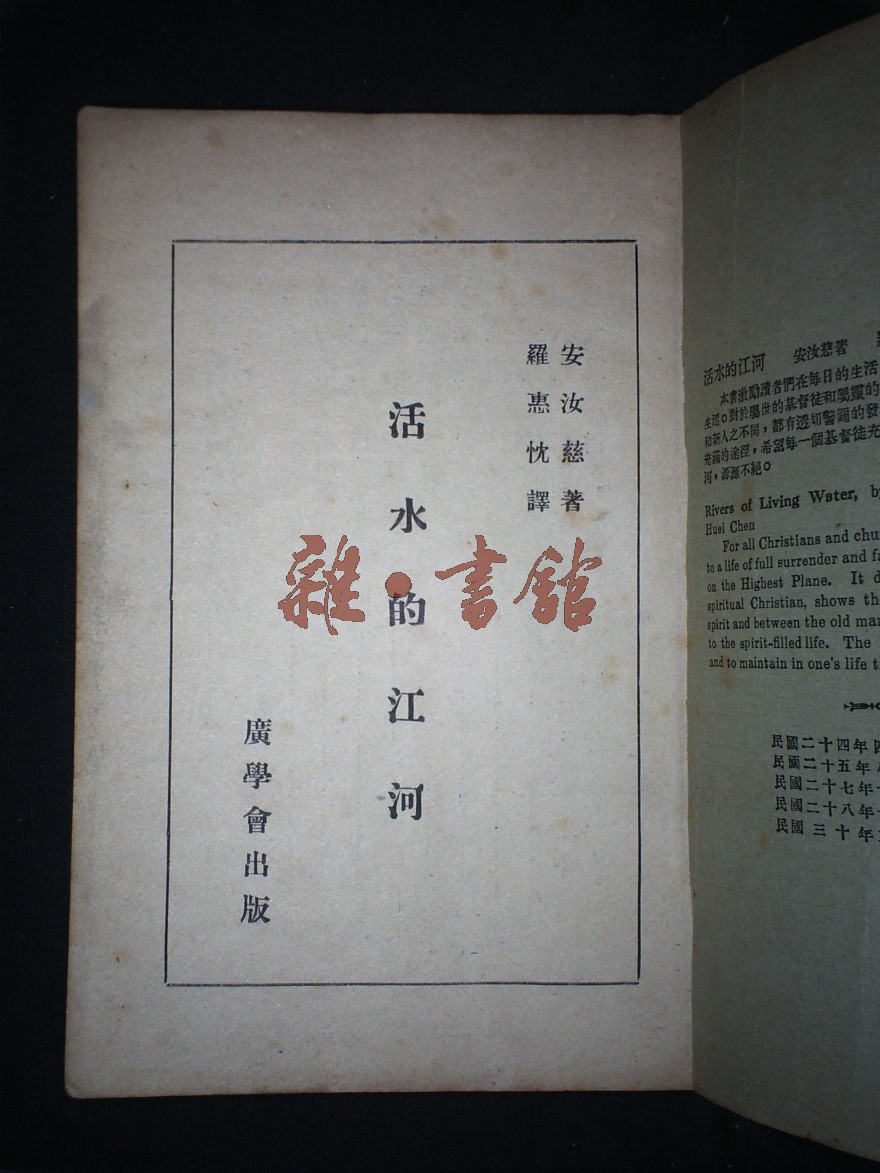 安汝慈著
羅惠忱譯
活水的江河
廣學會出版
雜·書館
活水的江河 安汝慈著
本書激勵讀者們在每日的生活
生活。對於屬世的基督徒和屬靈的
和新人之不同，都有透切警闢的發
充滿的途徑，希望每一個基督徒充
河，源源不絕。
Rivers of Living Water, by
Huei Chen
For all Christians and chur
to a life of full surrender and fa
on the Highest Plane. It d
spiritual Christian, shows th
spirit and between the old man
to the spirit-filled life. The
and to maintain in one's life t
民國二十四年四
民國二十五年八
民國二十七年
民國二十八年
民國三十年